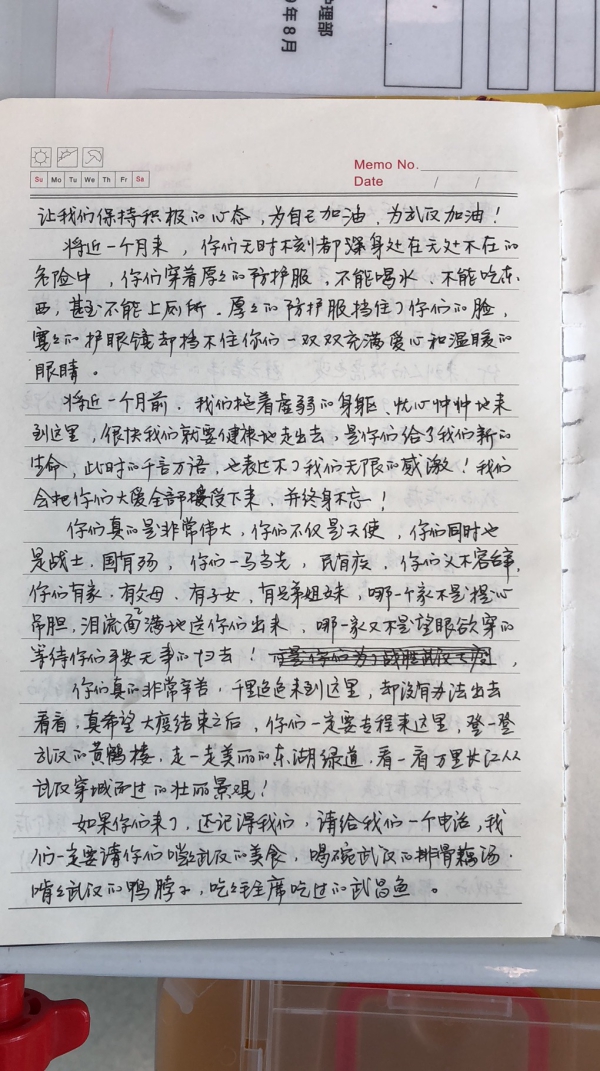 护理部
9年8月
Memo No.
Date / /
Su Mo Tu We Th Fr Sa
让我们保持积极的心态,为自己加油,为武汉加油!
将近一个月来,你们无时不刻都深身处在无处不在的
危险中,你们穿着厚々的防护服,不能喝水、不能吃东
西,甚至不能上厕所。厚々的防护服挡住了你们的脸,
宽々的护眼镜却挡不住你们一双双充满爱心和温暖的
眼睛。
将近一个月前,我们拖着虚弱的身躯、忧心忡忡地来
到这里,很快我们就要健康地走出去,是你们给了我们新的
生命,此时的千言万语,也表达不了我们无限的感激!我们
会把你们大爱全部接受下来,并终身不忘!
你们真的是非常伟大,你们不仅是天使,你们同时也
是战士,国有殇,你们一马当先,民有疾,你们义不容辞,
你们有家,有父母,有子女,有兄弟姐妹,哪一个家不是提心
吊胆,泪流面满地送你们出来,哪一家又不是望眼欲穿的
等待你们平安无事的归去!
你们真的非常辛苦,千里迢迢来到这里,却没有办法出去
看看,真希望大疫结束之后,你们一定要专程来这里,登一登
武汉的黄鹤楼,走一走美丽的东湖绿道,看一看万里长江从
武汉穿城而过的壮丽景观!
如果你们来了,还记得我们,请给我们一个电话,我
们一定要请你们嗨々武汉的美食,喝碗武汉的排骨藕汤,
啃々武汉的鸭脖子,吃々毛主席吃过的武昌鱼。